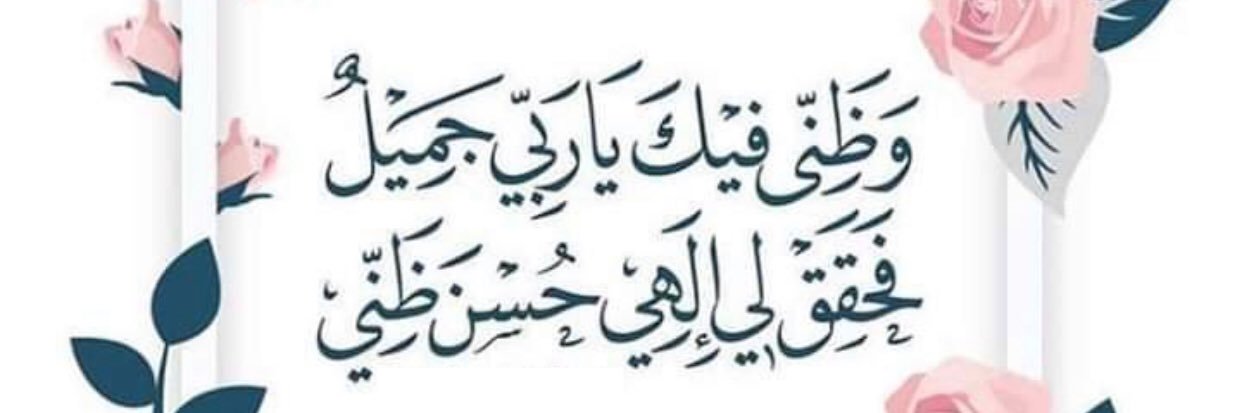 وَظَنِّى فِيْكَ يَا رَبِّي جَمِيْلٌ
فَحَقِقَْ لِي إِلَهِي حُسْنَ ظَنِّي